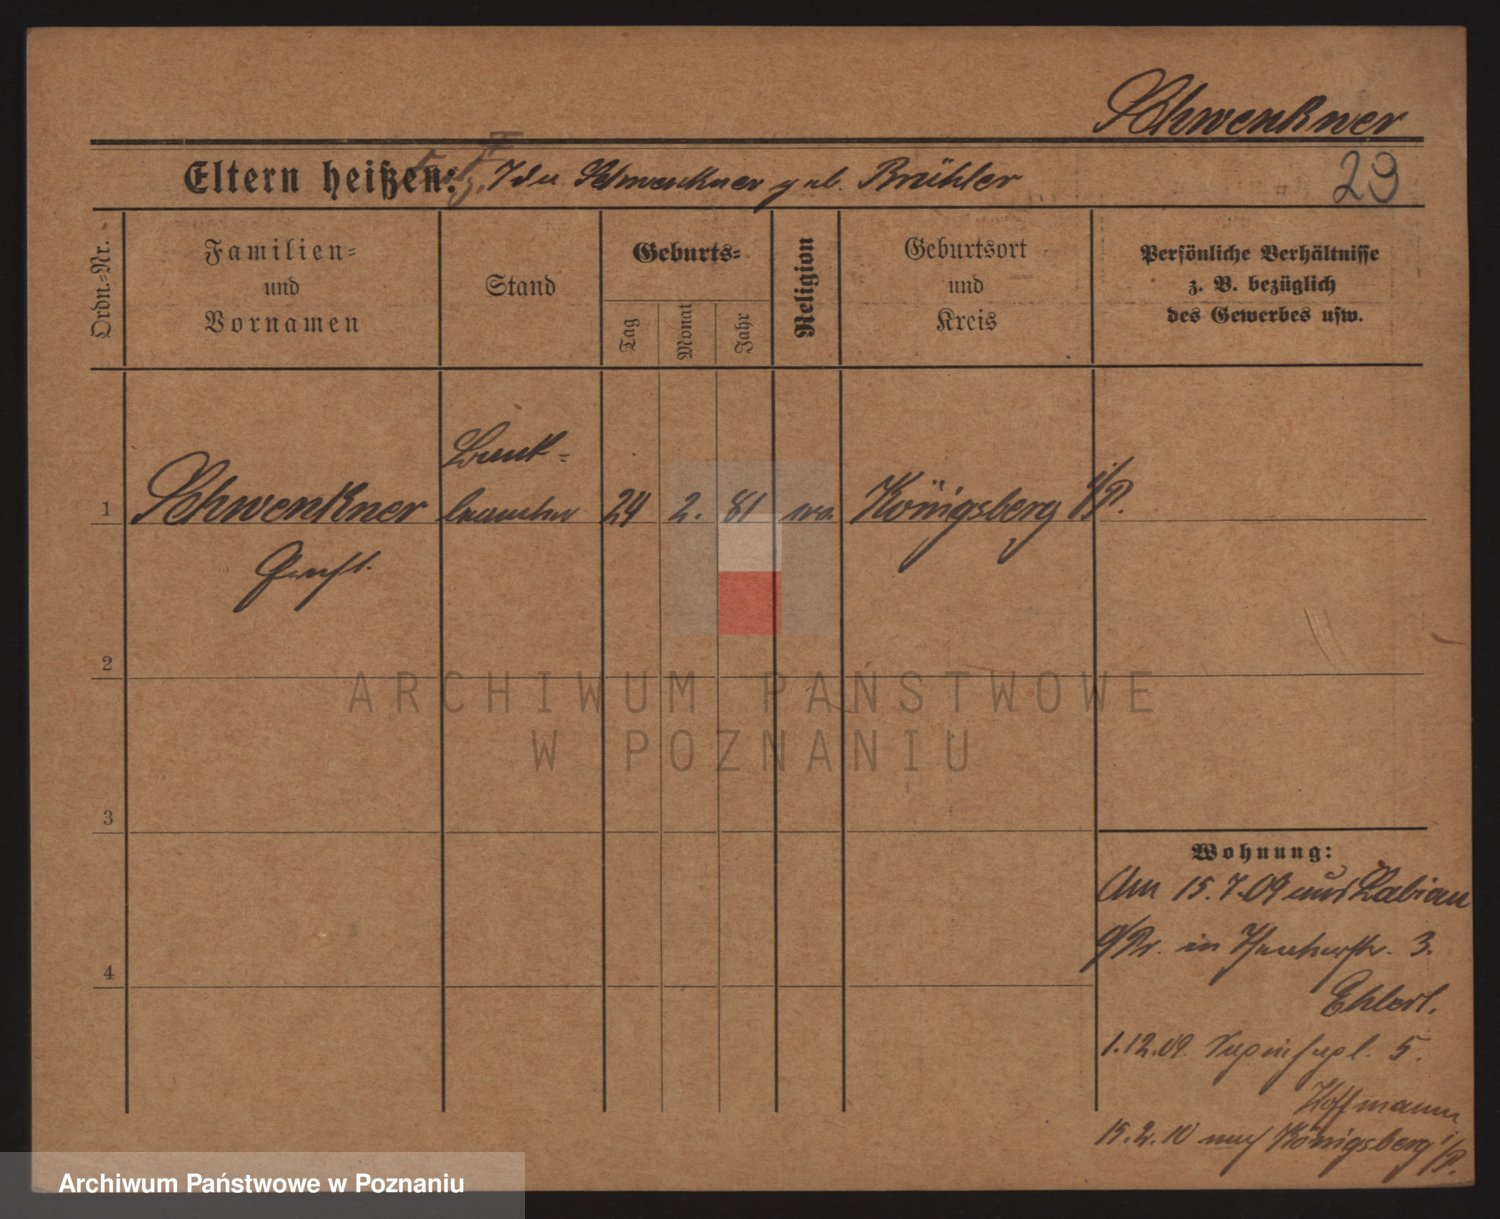 Schwenkner
Eltern heißen: Ida Schwenkner geb. Brühler
29
Ordn.-Nr.
Familien-
und
Vornamen
Stand
Geburts-
Tag
Monat
Jahr
Religion
Geburtsort
und
Kreis
Persönliche Verhältnisse
z. B. bezüglich
des Gewerbes usw.
Bank-
1 Schwenkner beamter 24 2. 81 ev. Königsberg i/P.
2
3
4
Wohnung:
Am 15.7.09 aus Labiau
O/Pr. in 3.
Ehlert.
1.12.09. 5.
Hoffmann
15.2.10 nach Königsberg i/P.
ARCHIWUM PAŃSTWOWE
W POZNANIU
Archiwum Państwowe w Poznaniu